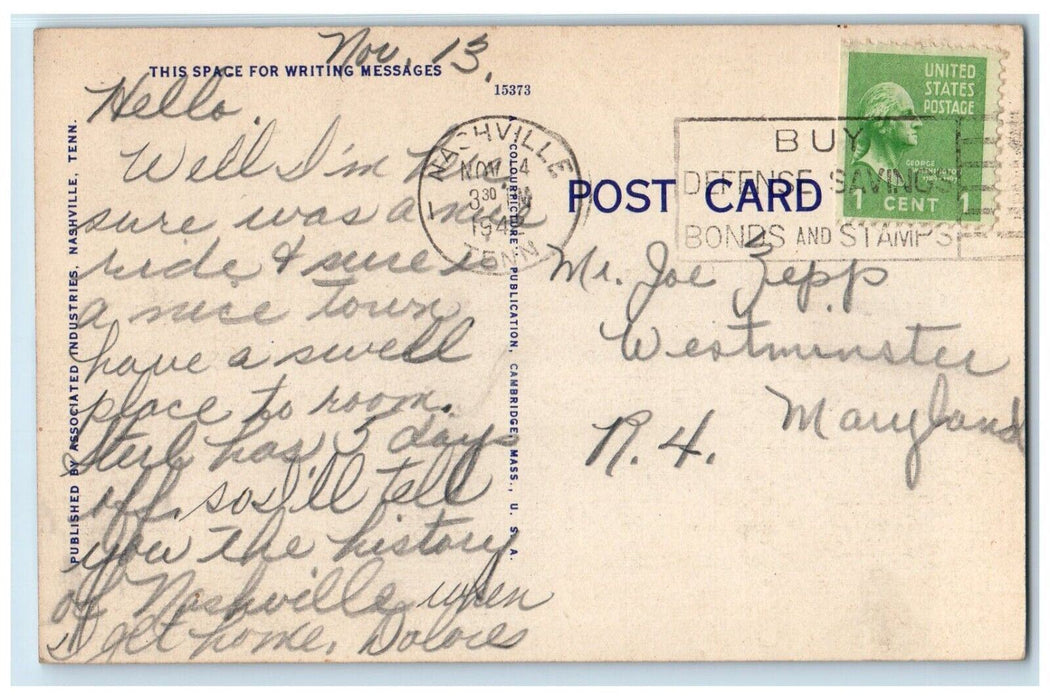 Nov. 13.
THIS SPACE FOR WRITING MESSAGES
15373
Hello.
Well I'm
sure was a nice
ride & sure is
a nice town
have a swell
place to room.
Sterl has 5 days
off, so I'll tell
you the history
of Nashville when
I get home. Dolores
PUBLISHED BY ASSOCIATED INDUSTRIES, NASHVILLE, TENN.
COLOURPICTURE PUBLICATION, CAMBRIDGE, MASS., U. S. A.
NASHVILLE
NOV 14
3 30 PM
TENN
POST CARD
BUY
DEFENSE SAVINGS
BONDS AND STAMPS
UNITED
STATES
POSTAGE
GEORGE
WASHINGTON
1 CENT 1
Mr. Joe Zepp
Westminster
Maryland
R. 4.